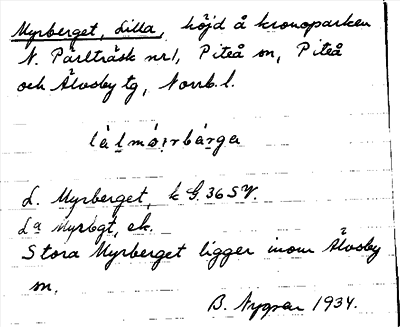 Myrberget, Lilla, höjd å kronoparken
N. Pärlträsk nr 1, Piteå sn, Piteå
och Älvsby tg, Norrb. l.
L. Myrberget, k G. 36 SV.
La Myrbgt, ek.
Stora Myrberget ligger inom Älvsby
sn.
B. Nygren 1934.